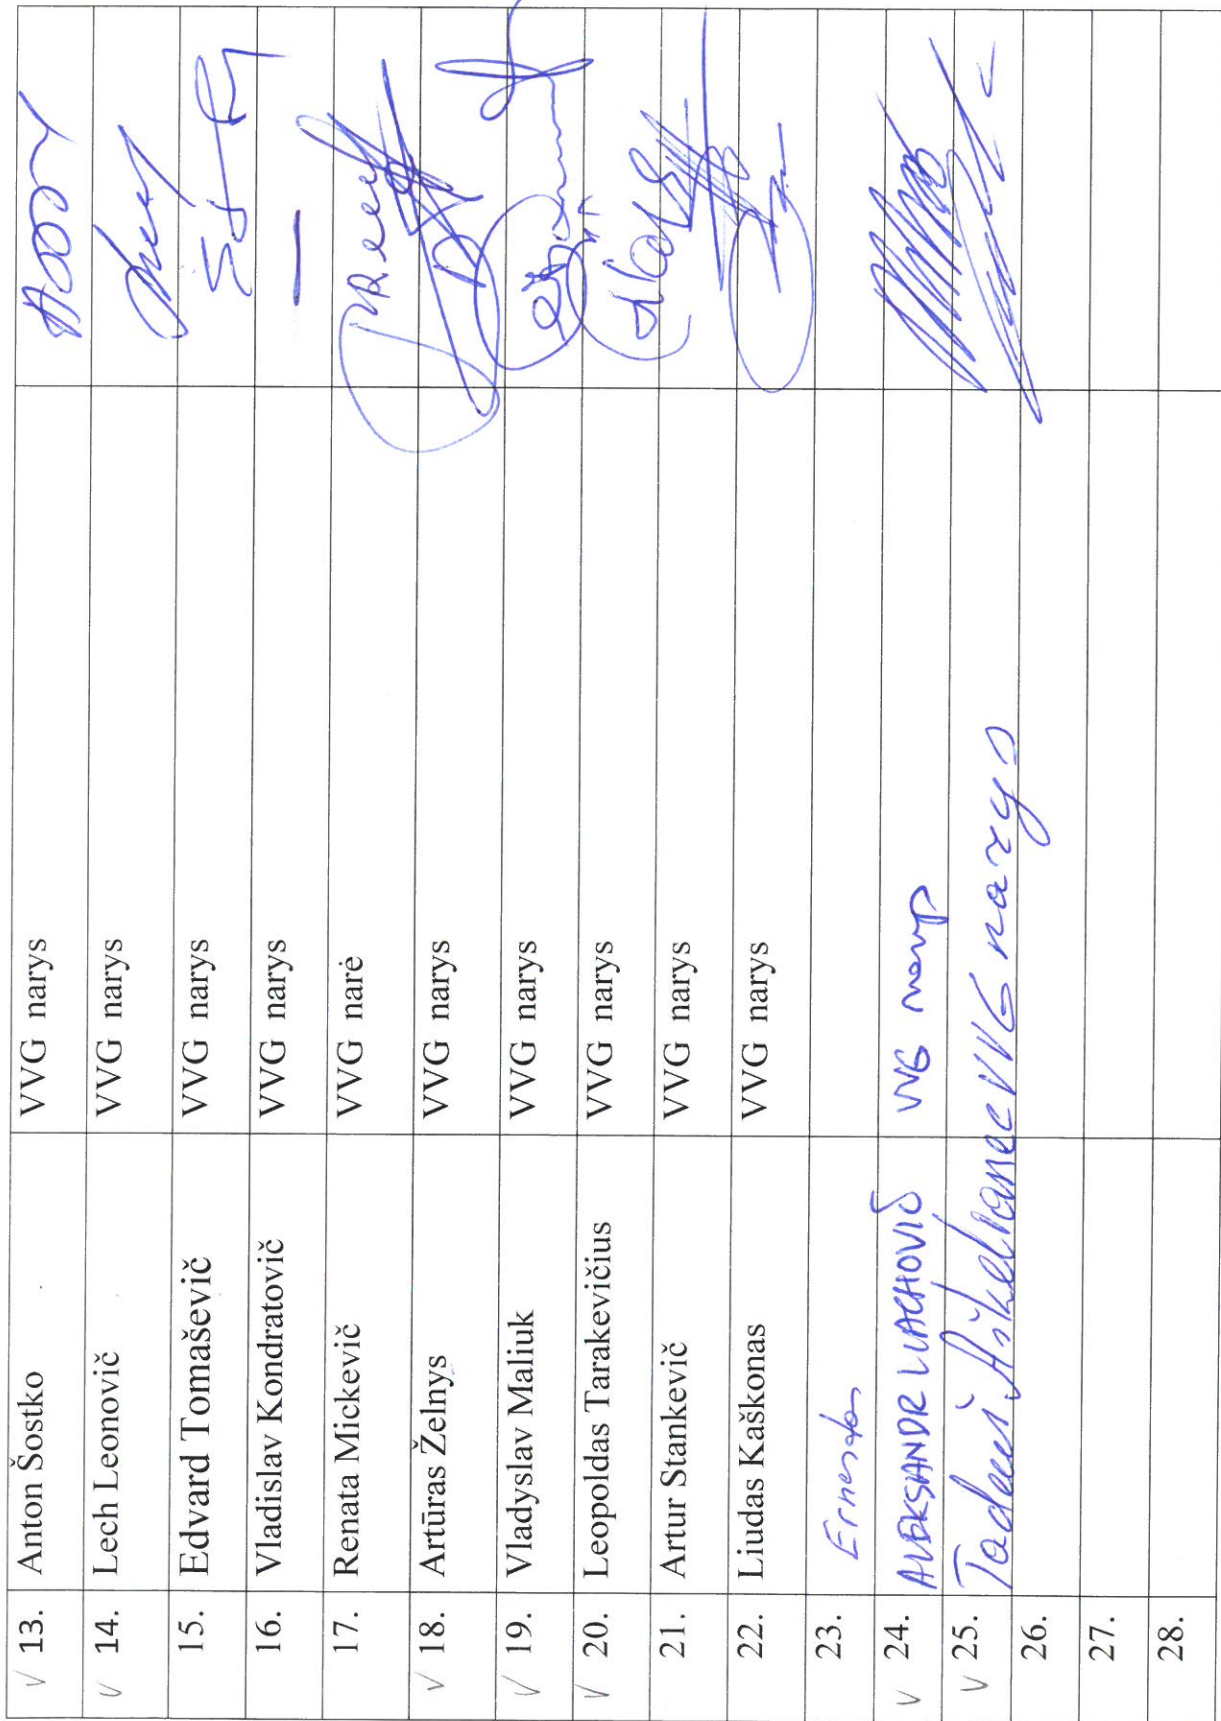 V 13. Anton Šostko VVG narys
V 14. Lech Leonovič VVG narys
15. Edvard Tomaševič VVG narys
16. Vladislav Kondratovič VVG narys —
17. Renata Mickevič VVG narė
V 18. Artūras Želnys VVG narys
V 19. Vladyslav Maliuk VVG narys
V 20. Leopoldas Tarakevičius VVG narys
21. Artur Stankevič VVG narys
22. Liudas Kaškonas VVG narys
23. Ernestas
V 24. ALEKSANDR LIACHOVIČ VVG narys
V 25. VVG narys
26.
27.
28.